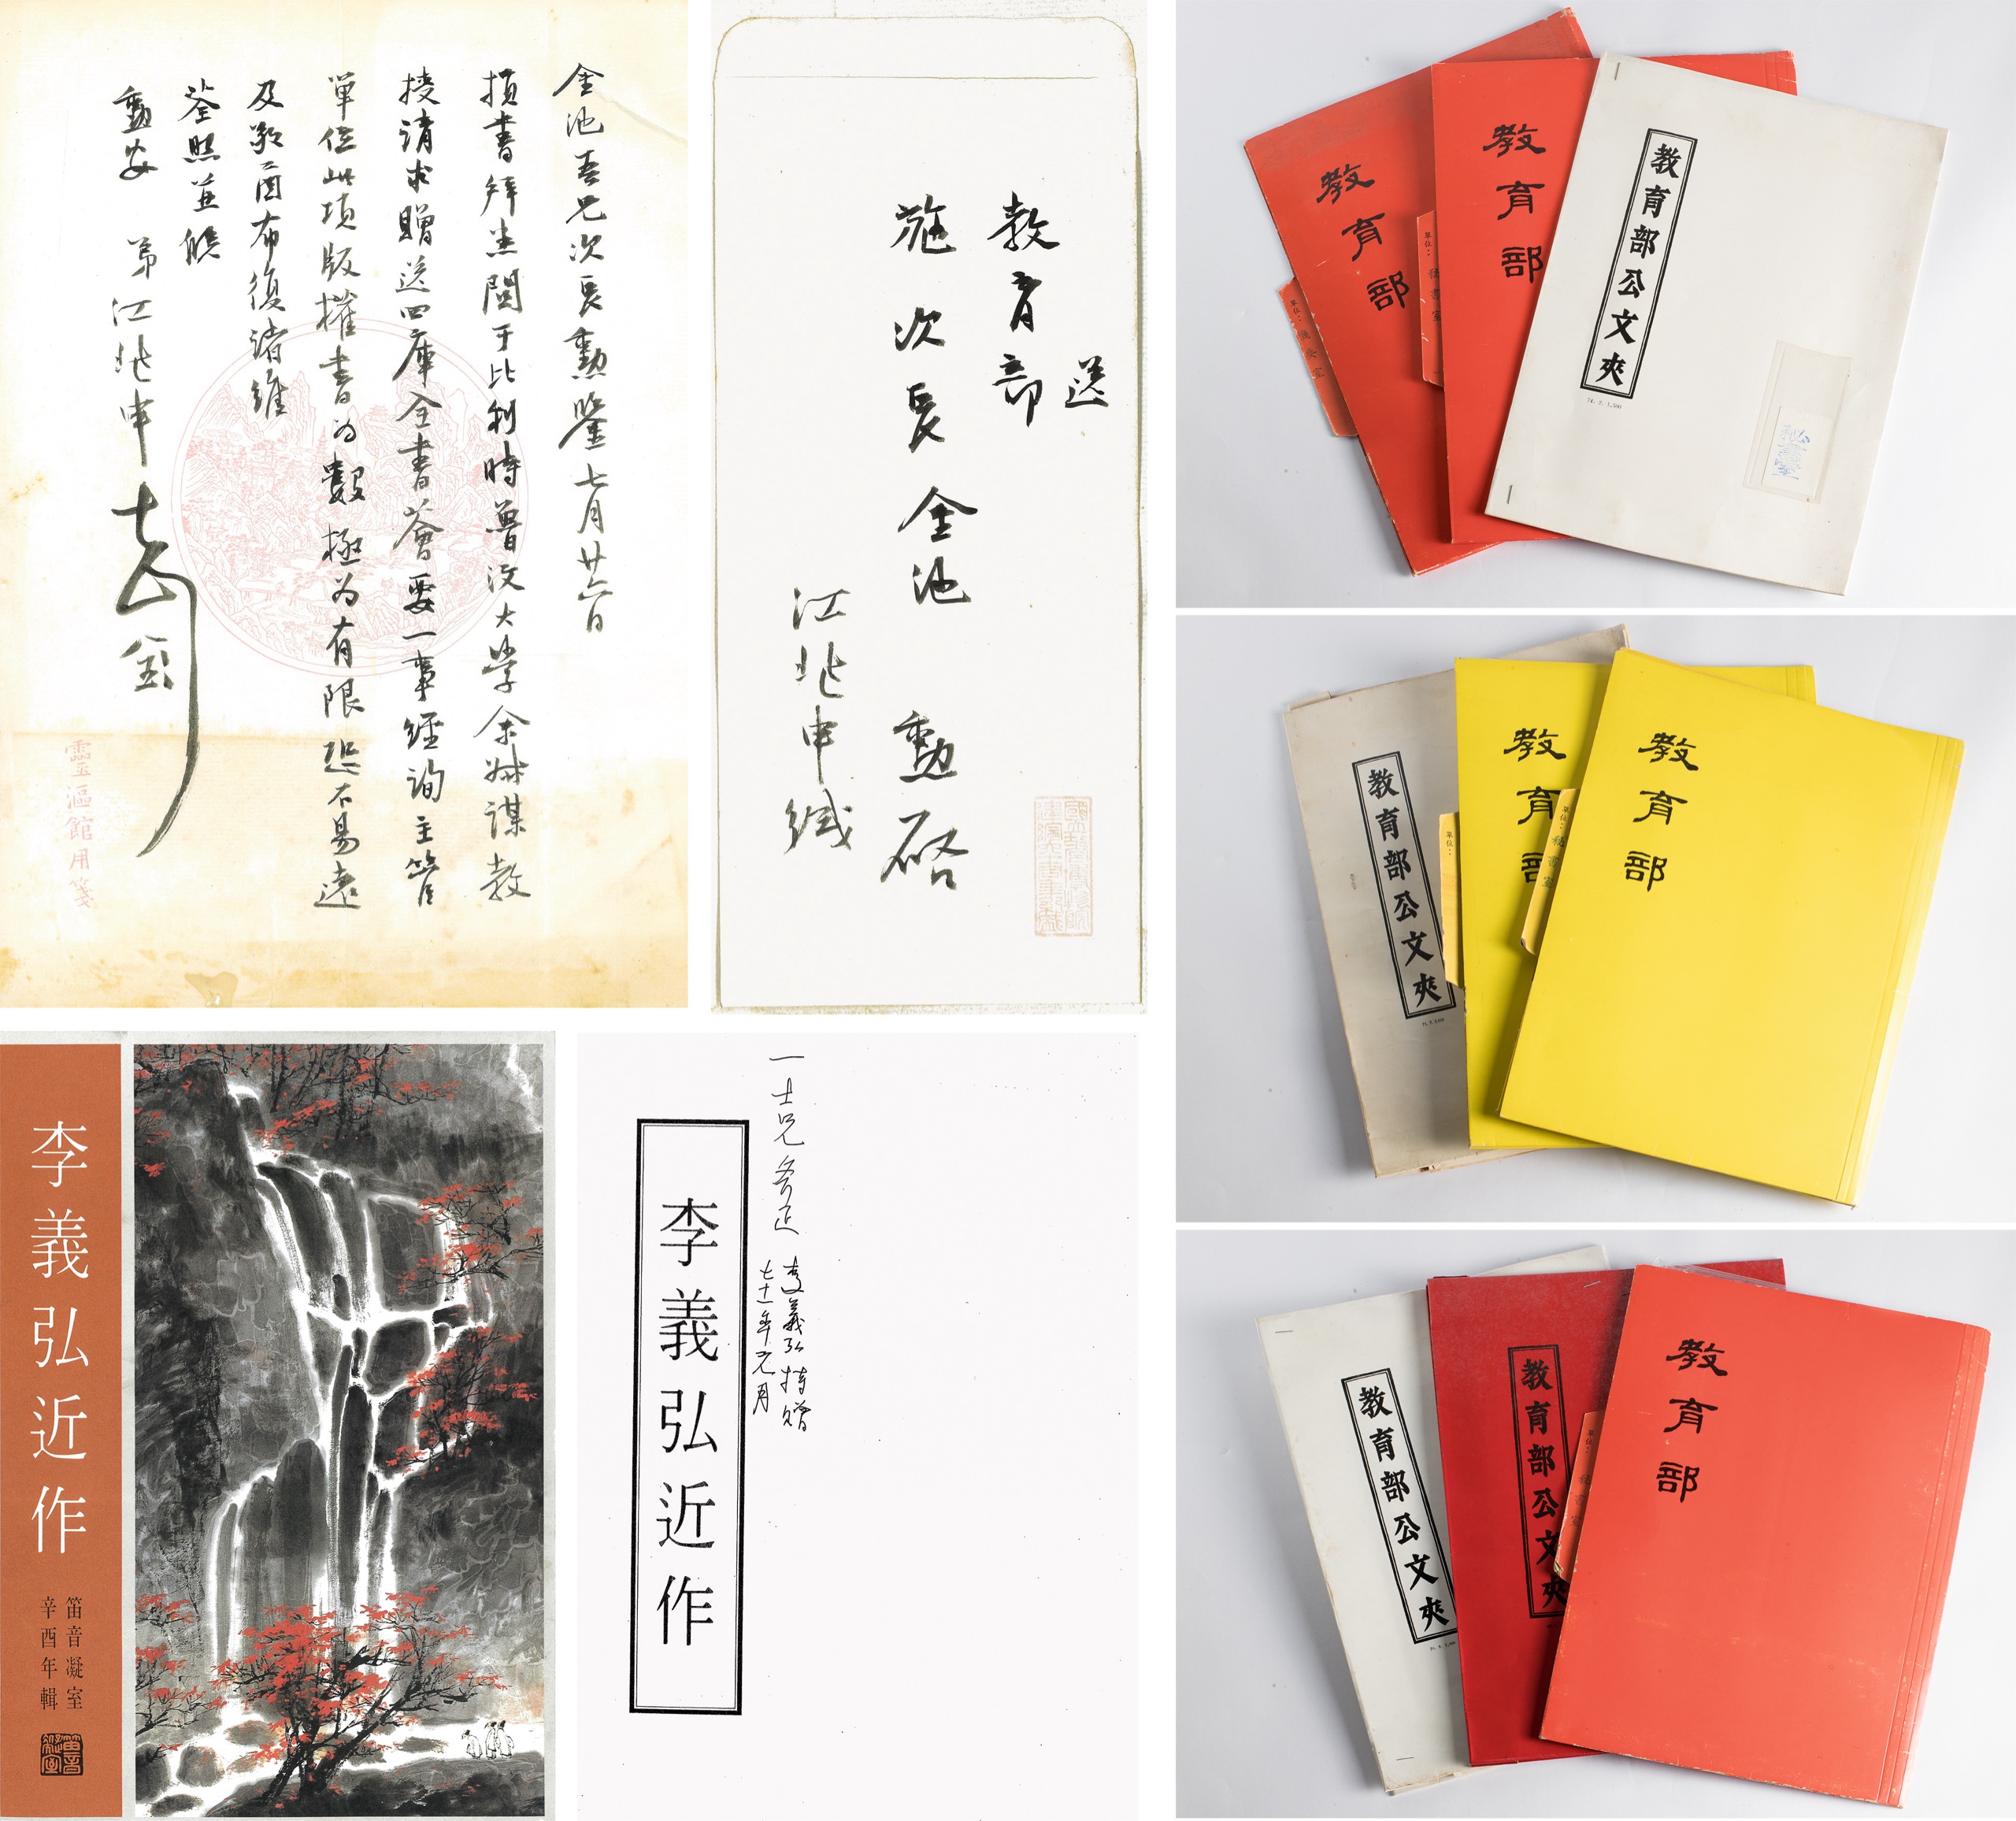 金池吾兄次長勳鑒七月廿六日
損書拜悉關于比利時魯汶大學余𡛖謀教
授請求贈送四庫全書薈要一事經詢主管
單位此項版權書為數極為有限恐不易遠
及歉函布復諸維
荃照並頌
勳安 弟江兆申
靈漚館用箋
送
教育部
施次長金池 勳啓
江兆申緘
教育部
單位:秘書室
教育部
單位:秘書室
教育部公文夾
74. 2. 1,500
秘書室
教育部公文夾
教育部
單位:
教育部
單位:秘書室
李義弘近作
笛音凝室
辛酉年輯
一士兄斧正
李義弘持贈
七十一年元月
李義弘近作
教育部公文夾
教育部公文夾
單位:
教育部